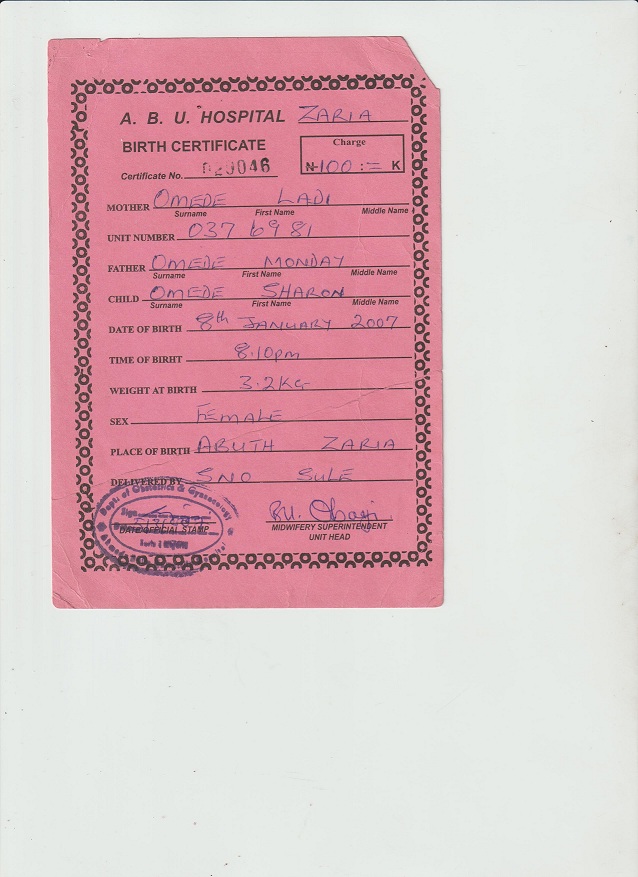 A. B. U. HOSPITAL ZARIA
BIRTH CERTIFICATE
Charge
N 100 := K
Certificate No. 029046
MOTHER OMEDE LADI
Surname First Name Middle Name
UNIT NUMBER 037 69 81
FATHER OMEDE MONDAY
Surname First Name Middle Name
CHILD OMEDE SHARON
Surname First Name Middle Name
DATE OF BIRTH 8th JANUARY 2007
TIME OF BIRHT 8.10pm
WEIGHT AT BIRTH 3.2KG
SEX FEMALE
PLACE OF BIRTH ABUTH ZARIA
DELIVERED BY SNO SULE
Dept. of Obstetrics & Gynaecology
Sign
DATE/OFFICIAL STAMP
MIDWIFERY SUPERINTENDENT
UNIT HEAD